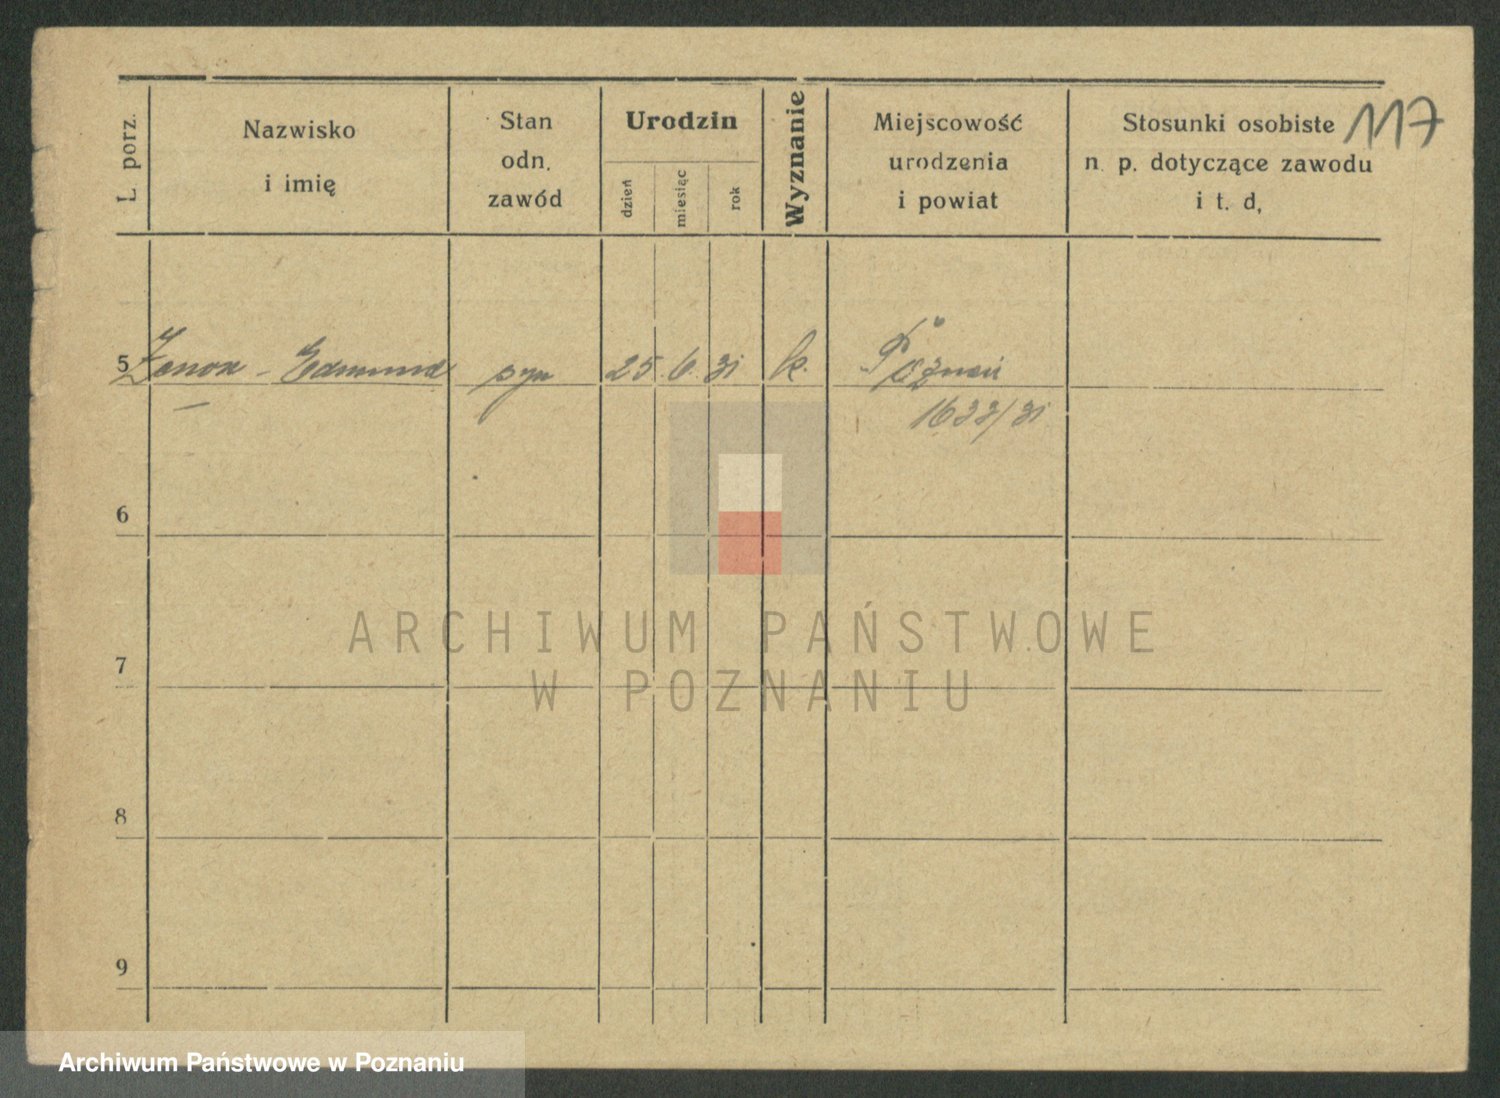 117
L porz.
Nazwisko
i imię
Stan
odn.
zawód
Urodzin
dzień
miesiąc
rok
Wyznanie
Miejscowość
urodzenia
i powiat
Stosunki osobiste
n. p. dotyczące zawodu
i t. d,
5 Zenon - Edmund syn 25 6 31 k. Poznań
1633/31
6
7
8
9
ARCHIWUM PAŃSTWOWE
W POZNANIU
Archiwum Państwowe w Poznaniu